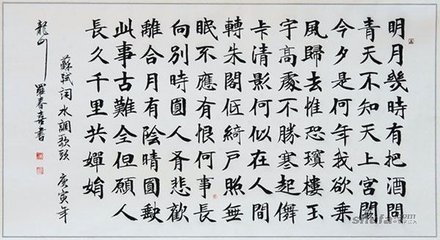 明月幾時有把酒問
青天不知天上宮闕
今夕是何年我欲乘
風歸去惟恐瓊樓玉
宇高處不勝寒起儛
弄清影何似在人間
轉朱閣低綺戶照無
眠不應有恨何事長
向別時圓人有悲歡
離合月有陰晴圓缺
此事古難全但願人
長久千里共嬋娟
蘇軾詞水調歌頭 庚寅年
龍山 羅春喜書